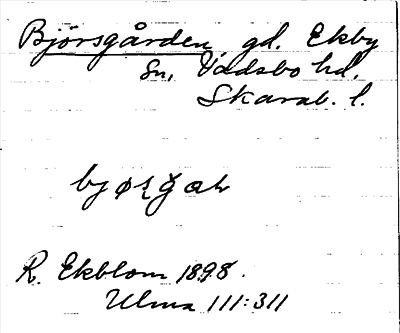 Björsgården, gd. Ekby
sn, Vadsbo hd,
Skarab. l.
R. Ekblom 1898.
Ulma 111:311